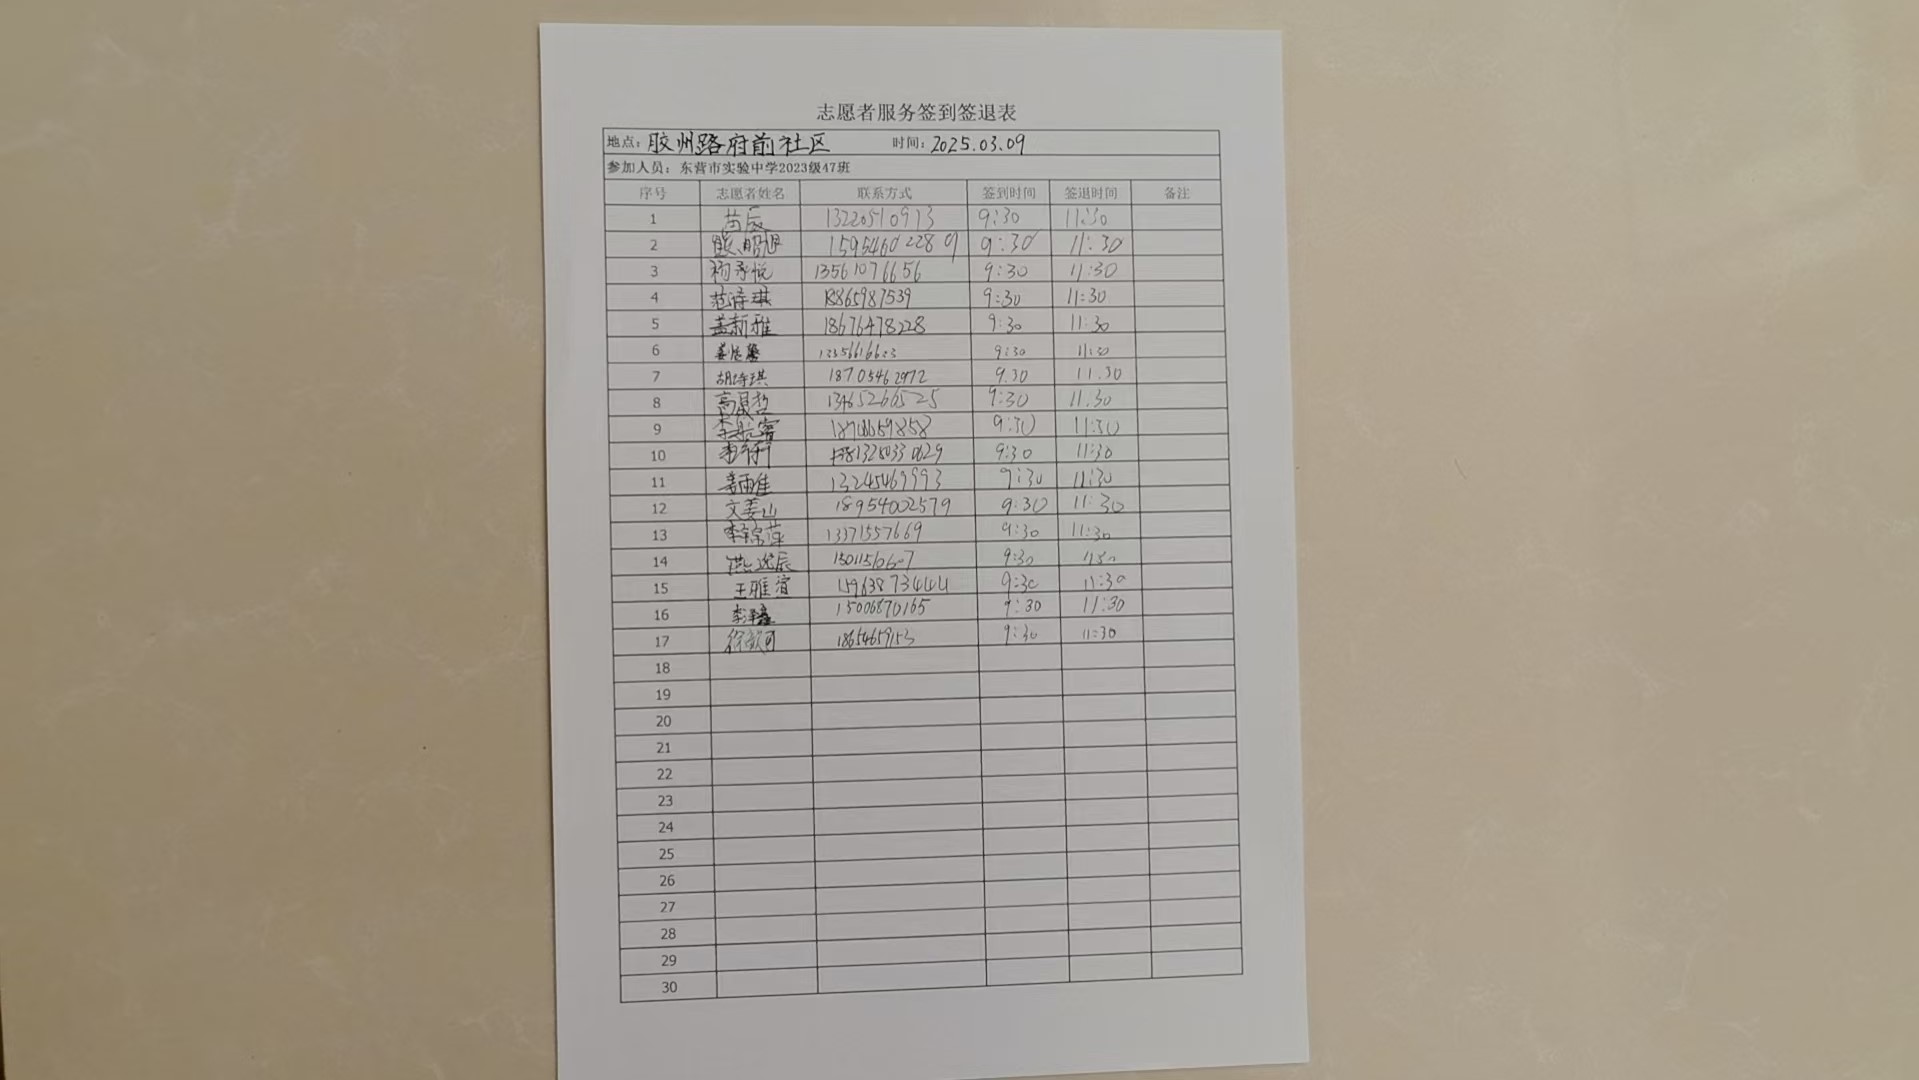 志愿者服务签到签退表
地点：胶州路府前社区 时间：2025.03.09
参加人员：东营市实验中学2023级47班
序号 志愿者姓名 联系方式 签到时间 签退时间 备注
1 苗辰 13220510913 9:30 11:30
2 15954602289 9:30 11:30
3 杨承悦 13561076656 9:30 11:30
4 范诗琪 18865987539 9:30 11:30
5 盖新雅 18676478228 9:30 11:30
6 9:30 11:30
7 胡诗琪 18705462972 9.30 11.30
8 高晟哲 13465266525 9:30 11.30
9 9:30 11:30
10 9:30 11:30
11 姜雨佳 13245469993 9:30 11:30
12 文姜山 18954002579 9:30 11:30
13 13371557669 9:30 11:30
14 燕逸辰 9:30 11:30
15 王雅萱 15963873444 9:30 11:30
16 15006870165 9:30 11:30
17 9:30 11:30
18
19
20
21
22
23
24
25
26
27
28
29
30